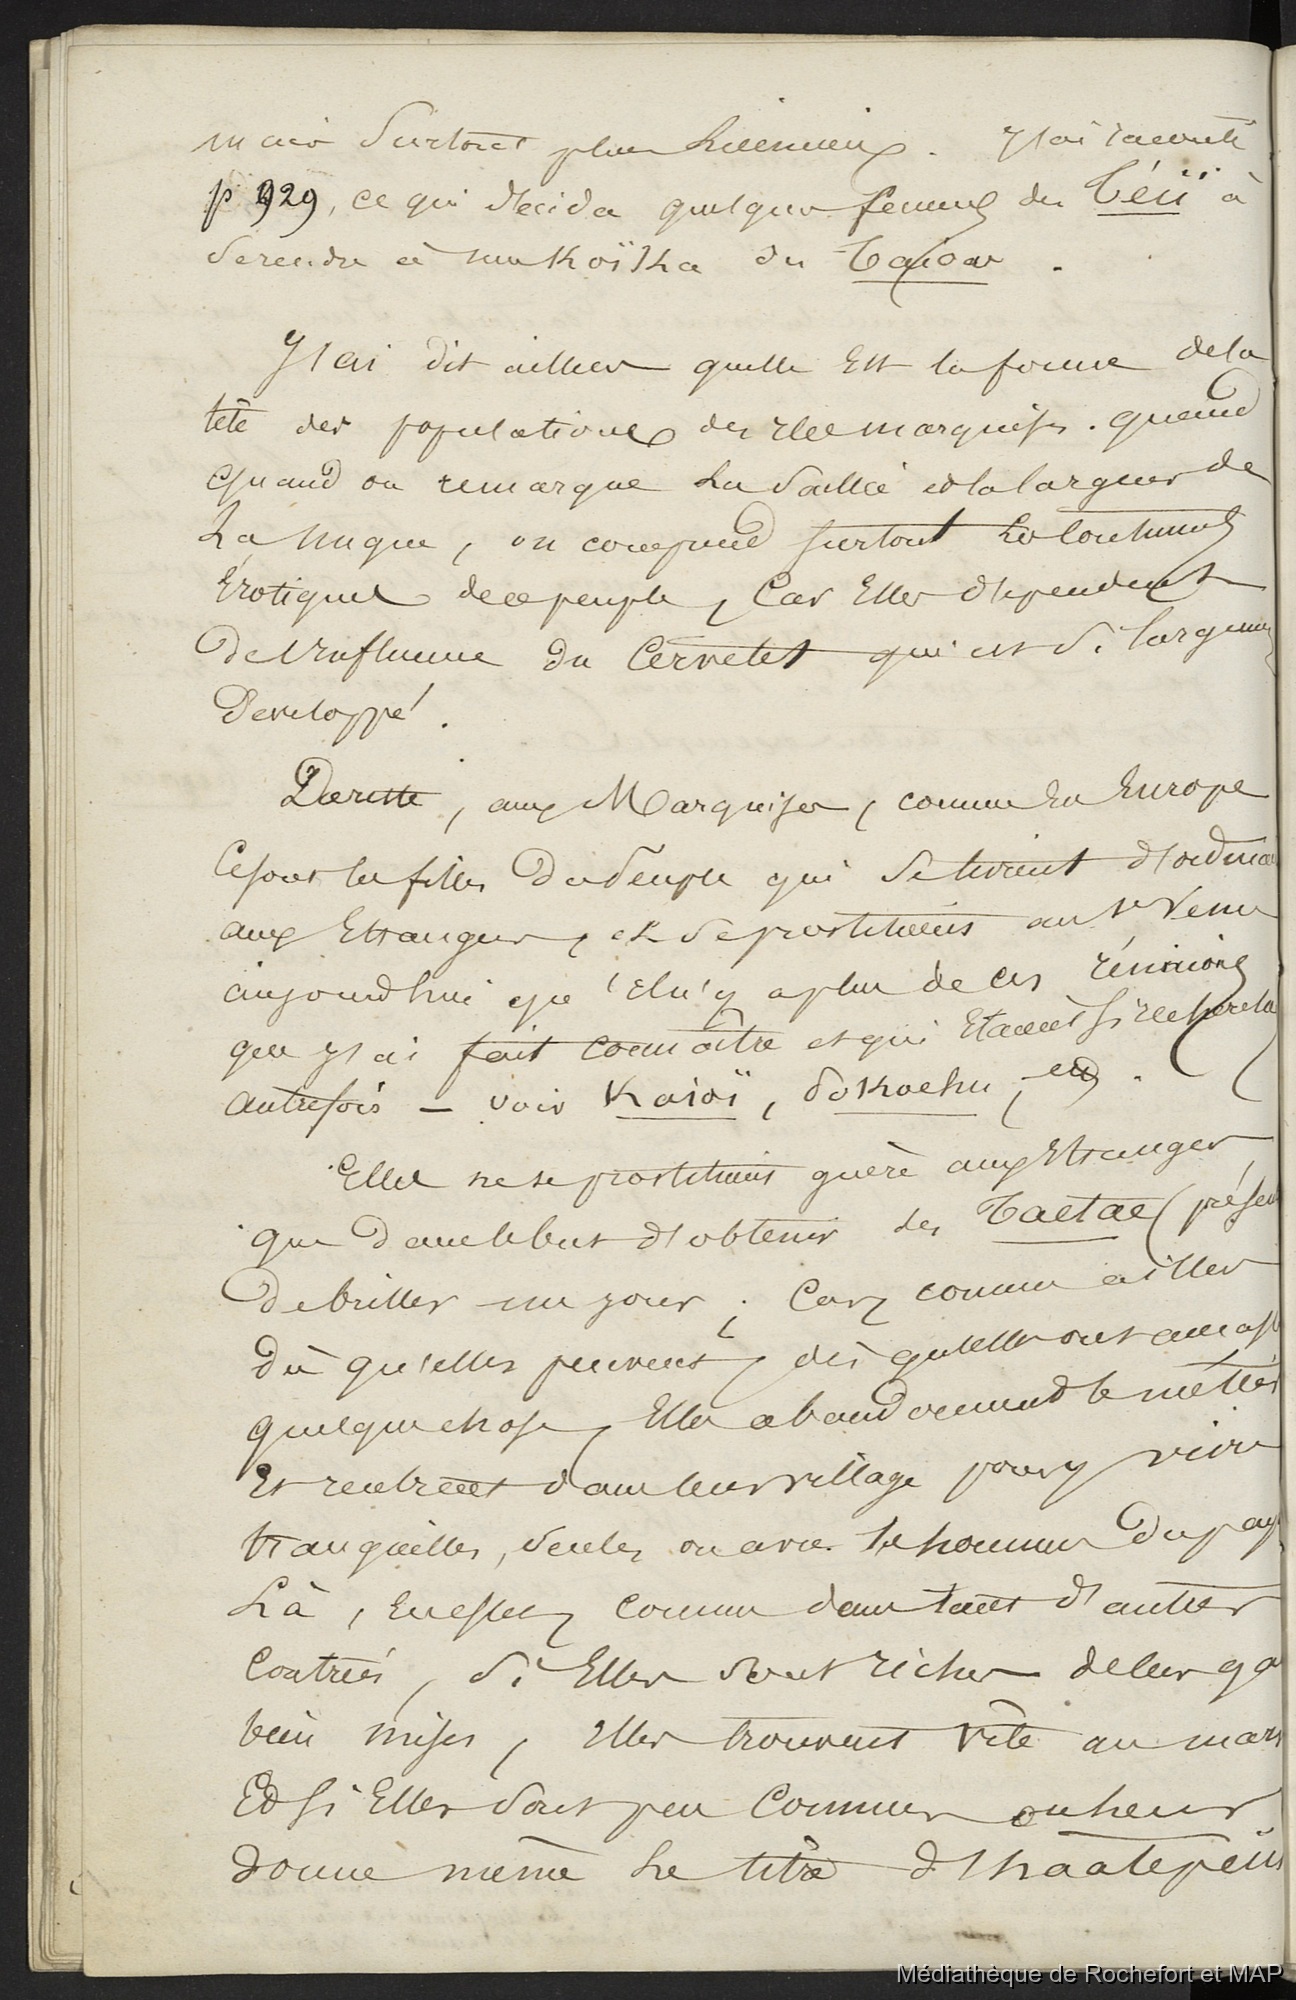 mais surtout plus lumineux. J'ai raconté
p 929, ce qui décida quelques femmes du Téii à
se rendre à mu Koïka du Taioa.
J'ai dit ailleurs quelle est la forme de la
tête des populations des iles marquises. quand
quand on remarque la saillie et la largeur de
la nuque, on comprend surtout les coutumes
Erotiques de ce peuple, car Elles dépendent
de l'influence du Cervelet qui est si largement
Développé.
Du reste, aux Marquises, comme En Europe
Ce sont les filles du Peuple qui se livrent d'ordinai
aux Etrangers, et se prostituent au 1er venu
aujourdhui qu'il n'y a plus de ces réunions
que j'ai fait connaître et qui Etaient si recherchées
autrefois - voir Kaioï, Koehu,
Elles ne se prostituent guère aux Etrangers
que dans le but d'obtenir des Taetae (présen
de briller un jour; Car, comme ailleurs
dès qu'elles peuvent, dès qu'elles ont amassé
quelque chose, Elles abandonnent le métier
Et rentrent dans leur village pour y vivre
tranquilles, seules ou avec les hommes du pays
Là, En effet, comme dans tant d'autres
Contrées, si Elles sont riches de leur ga
bien mises, Elles trouvent vite un mari
Et si Elles sont peu Connues on leur
donne même le titre d'haatepeiu
Médiathèque de Rochefort et MAP